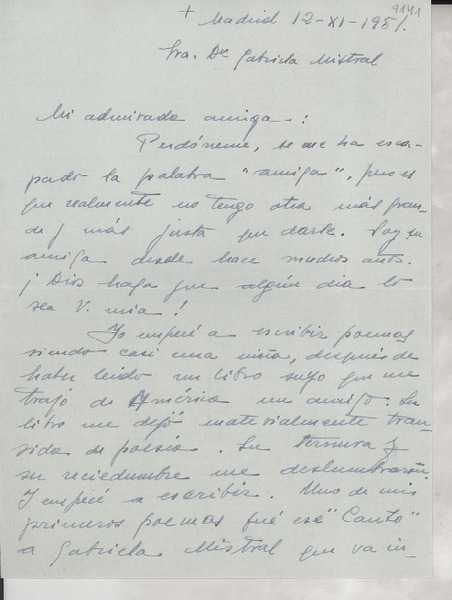 9141
+ Madrid 12-XI-1951.
Sra. Dª Gabriela Mistral
Mi admirada amiga:
Perdóneme, se me ha esca-
pado la palabra "amiga", pues es
que realmente no tengo otra más gran-
de y más justa que darle. Soy su
amiga desde hace muchos años.
¡Dios haga que algún dia lo
sea V. mia!
Yo empecé a escribir poemas
siendo casi una niña, después de
haber leido un libro suyo que me
trajo de América un amigo. Su
libro me dejó materialmente tran-
sida de poesía. Su ternura y
su reciedumbre me deslumbraron.
Y empecé a escribir. Uno de mis
primeros poemas fué ese "Canto"
a Gabriela Mistral que va in-